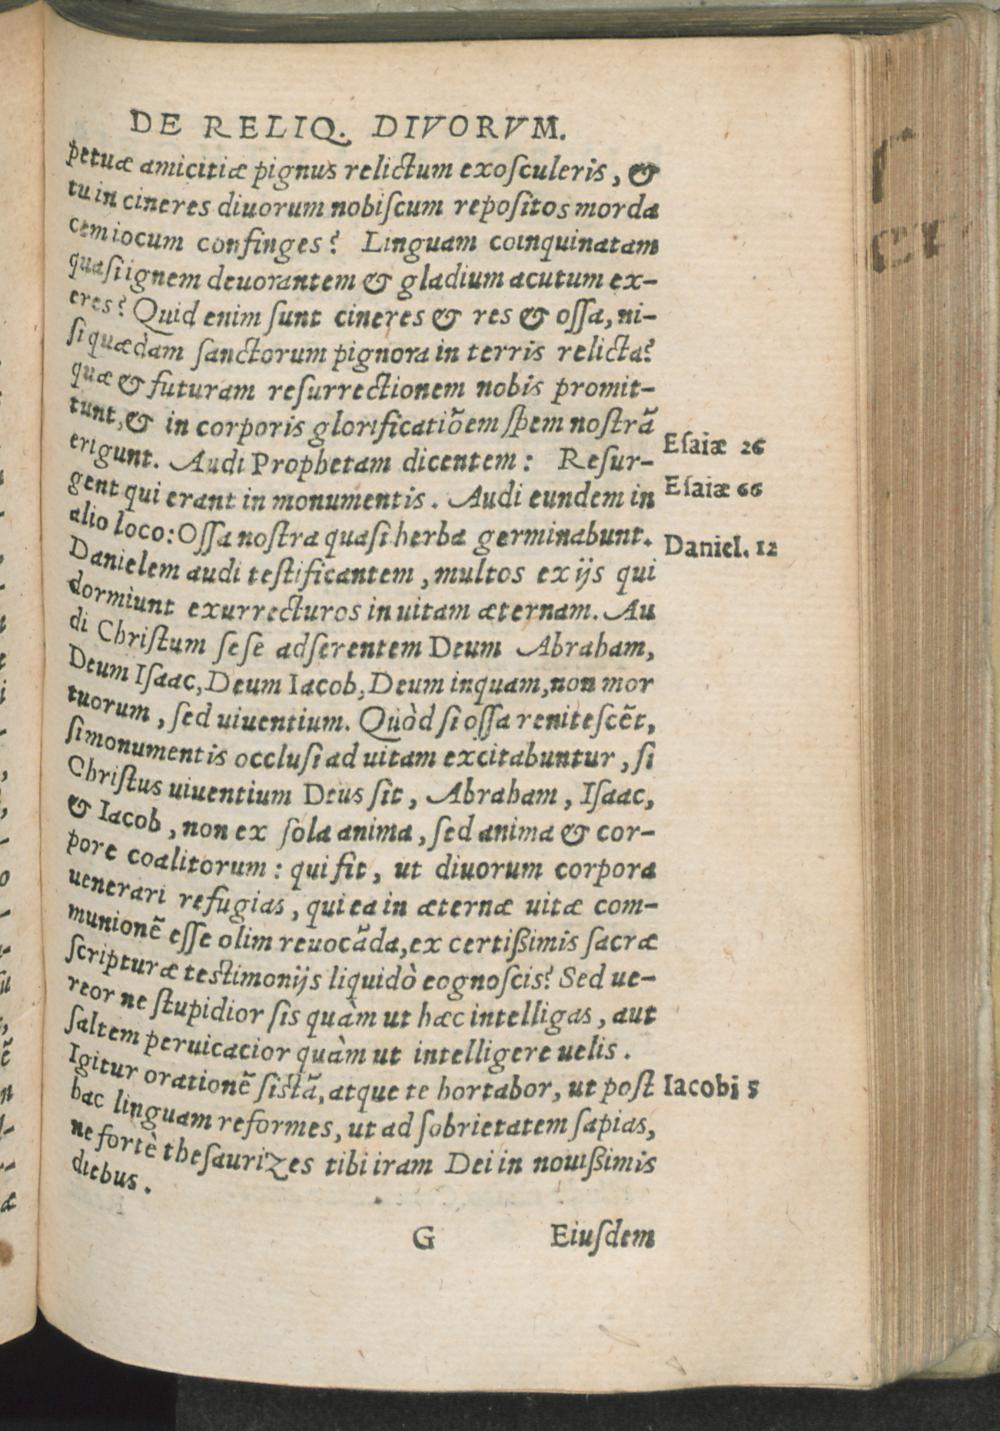 DE RELIQ. DIVORVM.
petuæ amicitiæ pignus relictum exosculeris, &
tu in cineres diuorum nobiscum repositos morda
cem iocum confinges? Linguam coinquinatam
quasi ignem deuorantem & gladium acutum ex-
eres? Quid enim sunt cineres & res & ossa, ni-
si quædam sanctorum pignora in terris relicta?
quæ & futuram resurrectionem nobis promit-
tunt, & in corporis glorificatiõem spem nostrã
erigunt. Audi Prophetam dicentem: Resur-
Esaiæ 26
gent qui erant in monumentis. Audi eundem in
Esaiæ 66
alio loco: Ossa nostra quasi herba germinabunt.
Daniel. 12
Danielem audi testificantem, multos ex ijs qui
dormiunt exurrecturos in uitam æternam. Au
di Christum sese adserentem Deum Abraham,
Deum Isaac, Deum Iacob, Deum inquam, non mor
tuorum, sed uiuentium. Quòd si ossa renitescẽt,
si monumentis occlusi ad uitam excitabuntur, si
Christus uiuentium Deus sit, Abraham, Isaac,
& Iacob, non ex sola anima, sed anima & cor-
pore coalitorum: qui fit, ut diuorum corpora
uenerari refugias, qui ea in æternæ uitæ com-
munionẽ esse olim reuocãda, ex certißimis sacræ
scripturæ testimonijs liquidò eognoscis? Sed ue-
reor ne stupidior sis quàm ut hæc intelligas, aut
saltem peruicacior quàm ut intelligere uelis.
Igitur orationẽ sistã, atque te hortabor, ut post
Iacobi 5
hac linguam reformes, ut ad sobrietatem sapias,
ne fortè thesaurizes tibi iram Dei in nouißimis
diebus.
G Eiusdem